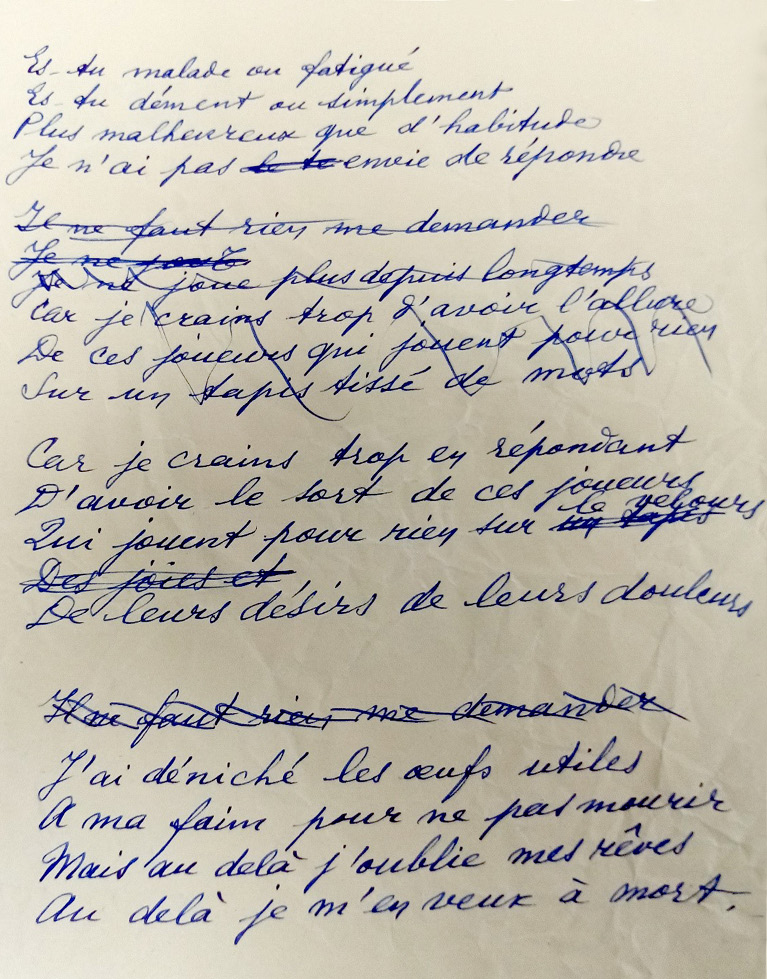 Es-tu malade ou fatigué
Es-tu dément ou simplement
Plus malheureux que d'habitude
Je n'ai pas envie de répondre
Il ne faut rien me demander
Je ne joue
Je ne joue plus depuis longtemps
Car je crains trop d'avoir l'allure
De ces joueurs qui jouent pour rien
Sur un tapis tissé de mots
Car je crains trop en répondant
D'avoir le sort de ces joueurs
le velours
Qui jouent pour rien sur un tapis
Des joies et
De leurs désirs de leurs douleurs
Il ne faut rien me demander
J'ai déniché les œufs utiles
A ma faim pour ne pas mourir
Mais au delà j'oublie mes rêves
Au delà je m'en veux à mort.